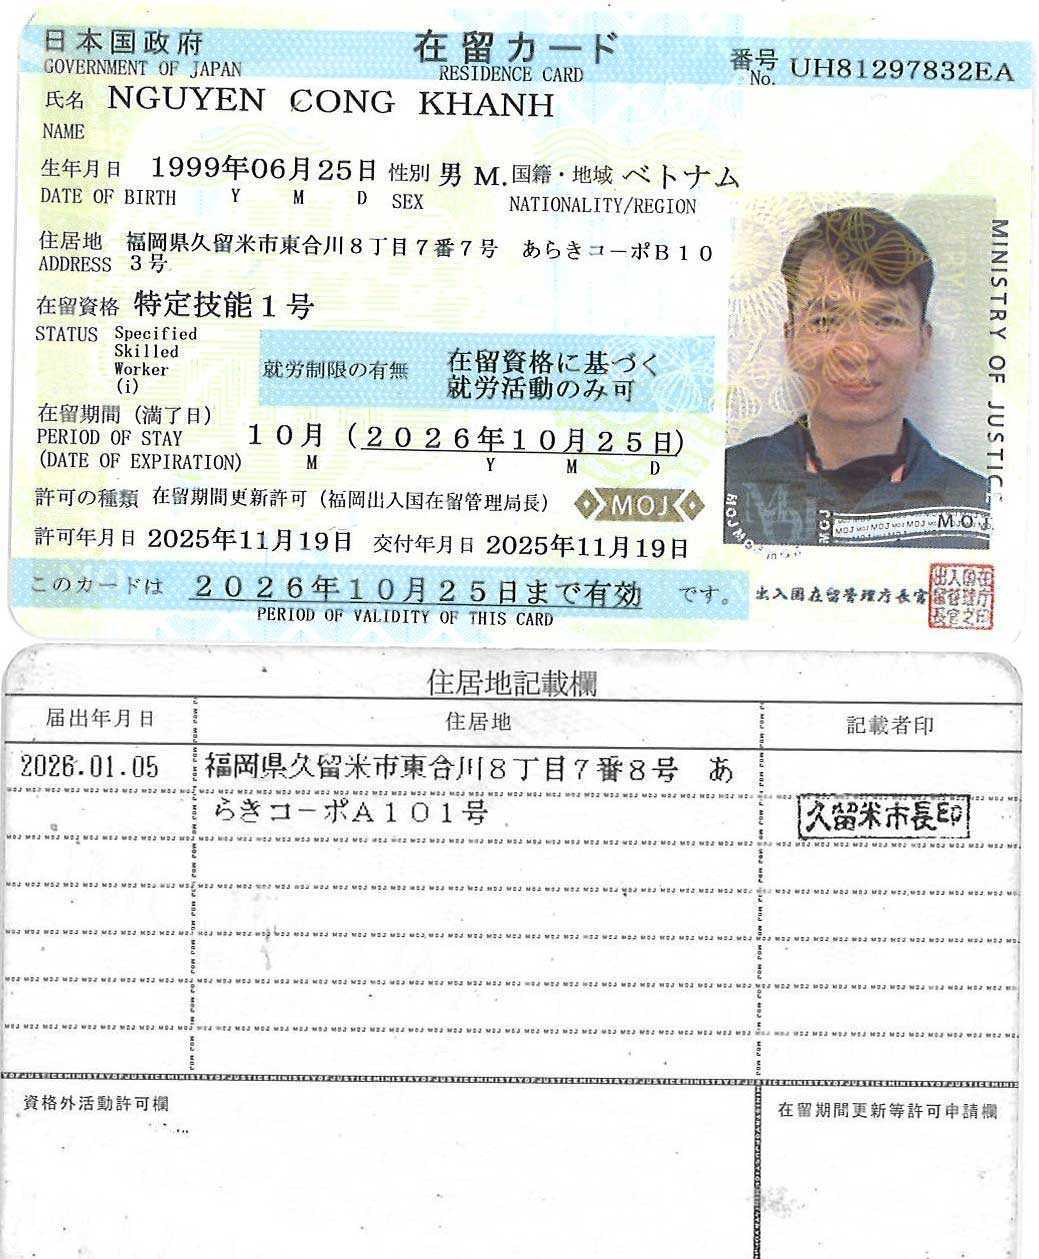 日本国政府 在留カード 番号 UH81297832EA
GOVERNMENT OF JAPAN RESIDENCE CARD No.
氏名 NGUYEN CONG KHANH
NAME
生年月日 1999年06月25日 性別 男 M. 国籍・地域 ベトナム
DATE OF BIRTH Y M D SEX NATIONALITY/REGION
住居地 福岡県久留米市東合川8丁目7番7号 あらきコーポB10
ADDRESS 3号
在留資格 特定技能1号
STATUS Specified
Skilled
Worker
(i)
就労制限の有無 在留資格に基づく
就労活動のみ可
在留期間(満了日)
PERIOD OF STAY 10月(2026年10月25日)
(DATE OF EXPIRATION) M Y M D
許可の種類 在留期間更新許可(福岡出入国在留管理局長) MOJ
許可年月日 2025年11月19日 交付年月日 2025年11月19日
このカードは 2026年10月25日まで有効 です。
PERIOD OF VALIDITY OF THIS CARD
出入国在留管理庁長官
出入国在留管理庁長官之印
MINISTRY OF JUSTICE
MOJ
住居地記載欄
届出年月日 住居地 記載者印
2026.01.05 福岡県久留米市東合川8丁目7番8号 あ
らきコーポA101号 久留米市長印
資格外活動許可欄 在留期間更新等許可申請欄